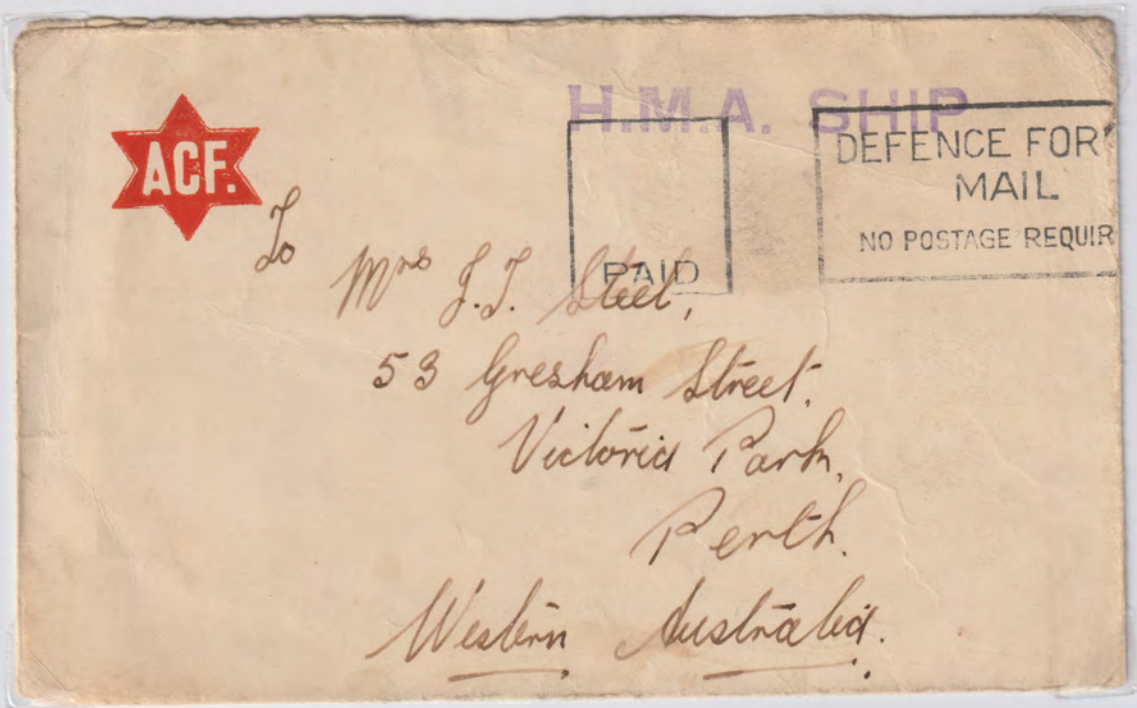 H.M.A. SHIP
ACF.
PAID
DEFENCE FOR
MAIL
NO POSTAGE REQUIR
To
Mrs J.T. Steel,
53 Gresham Street.
Victoria Park,
Perth.
Western Australia.